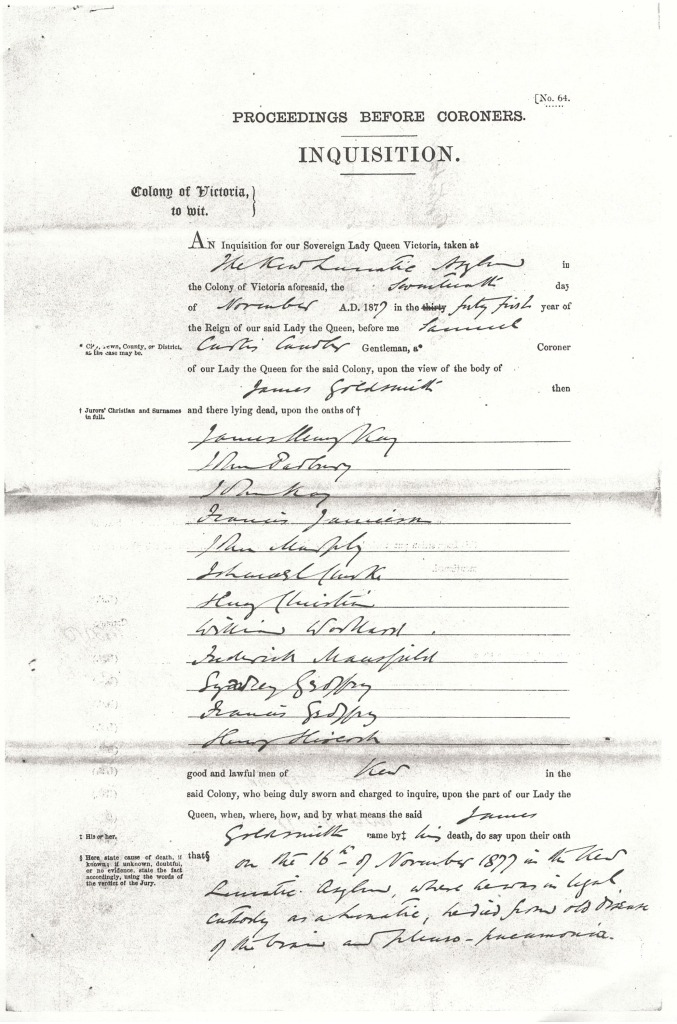 [No. 64.
PROCEEDINGS BEFORE CORONERS.
INQUISITION.
Colony of Victoria,
to wit.
AN Inquisition for our Sovereign Lady Queen Victoria, taken at
The Kew Lunatic Asylum in
the Colony of Victoria aforesaid, the Seventeenth day
of November A.D. 1877 in the thirty forty first year of
the Reign of our said Lady the Queen, before me Samuel
* City, Town, County, or District, as the case may be.
Curtis Candler Gentleman, a* Coroner
of our Lady the Queen for the said Colony, upon the view of the body of
James Goldsmith then
† Jurors' Christian and Surnames in full.
and there lying dead, upon the oaths of†
James Henry Kay
John Padbury
John Kay
Francis Jamieson
John Murphy
Ishmael Clarke
Henry Christian
William Woodward.
Frederick Mansfield
Sydney Godfrey
Francis Godfrey
Henry Hiscock
good and lawful men of Kew in the
said Colony, who being duly sworn and charged to inquire, upon the part of our Lady the
Queen, when, where, how, and by what means the said James
‡ His or her.
Goldsmith came by‡ his death, do say upon their oath
§ Here state cause of death, if known; if unknown, doubtful, or no evidence, state the fact accordingly, using the words of the verdict of the Jury.
that§ on the 16th of November 1877 in the Kew
Lunatic Asylum, where he was in legal
custody as a Lunatic, he died from old disease
of the brain and pleuro-pneumonia.